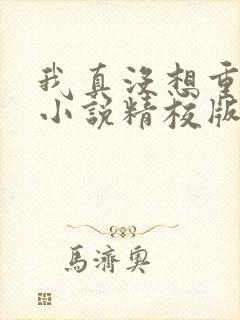 我真没想重
小说精校版
馬濟奥